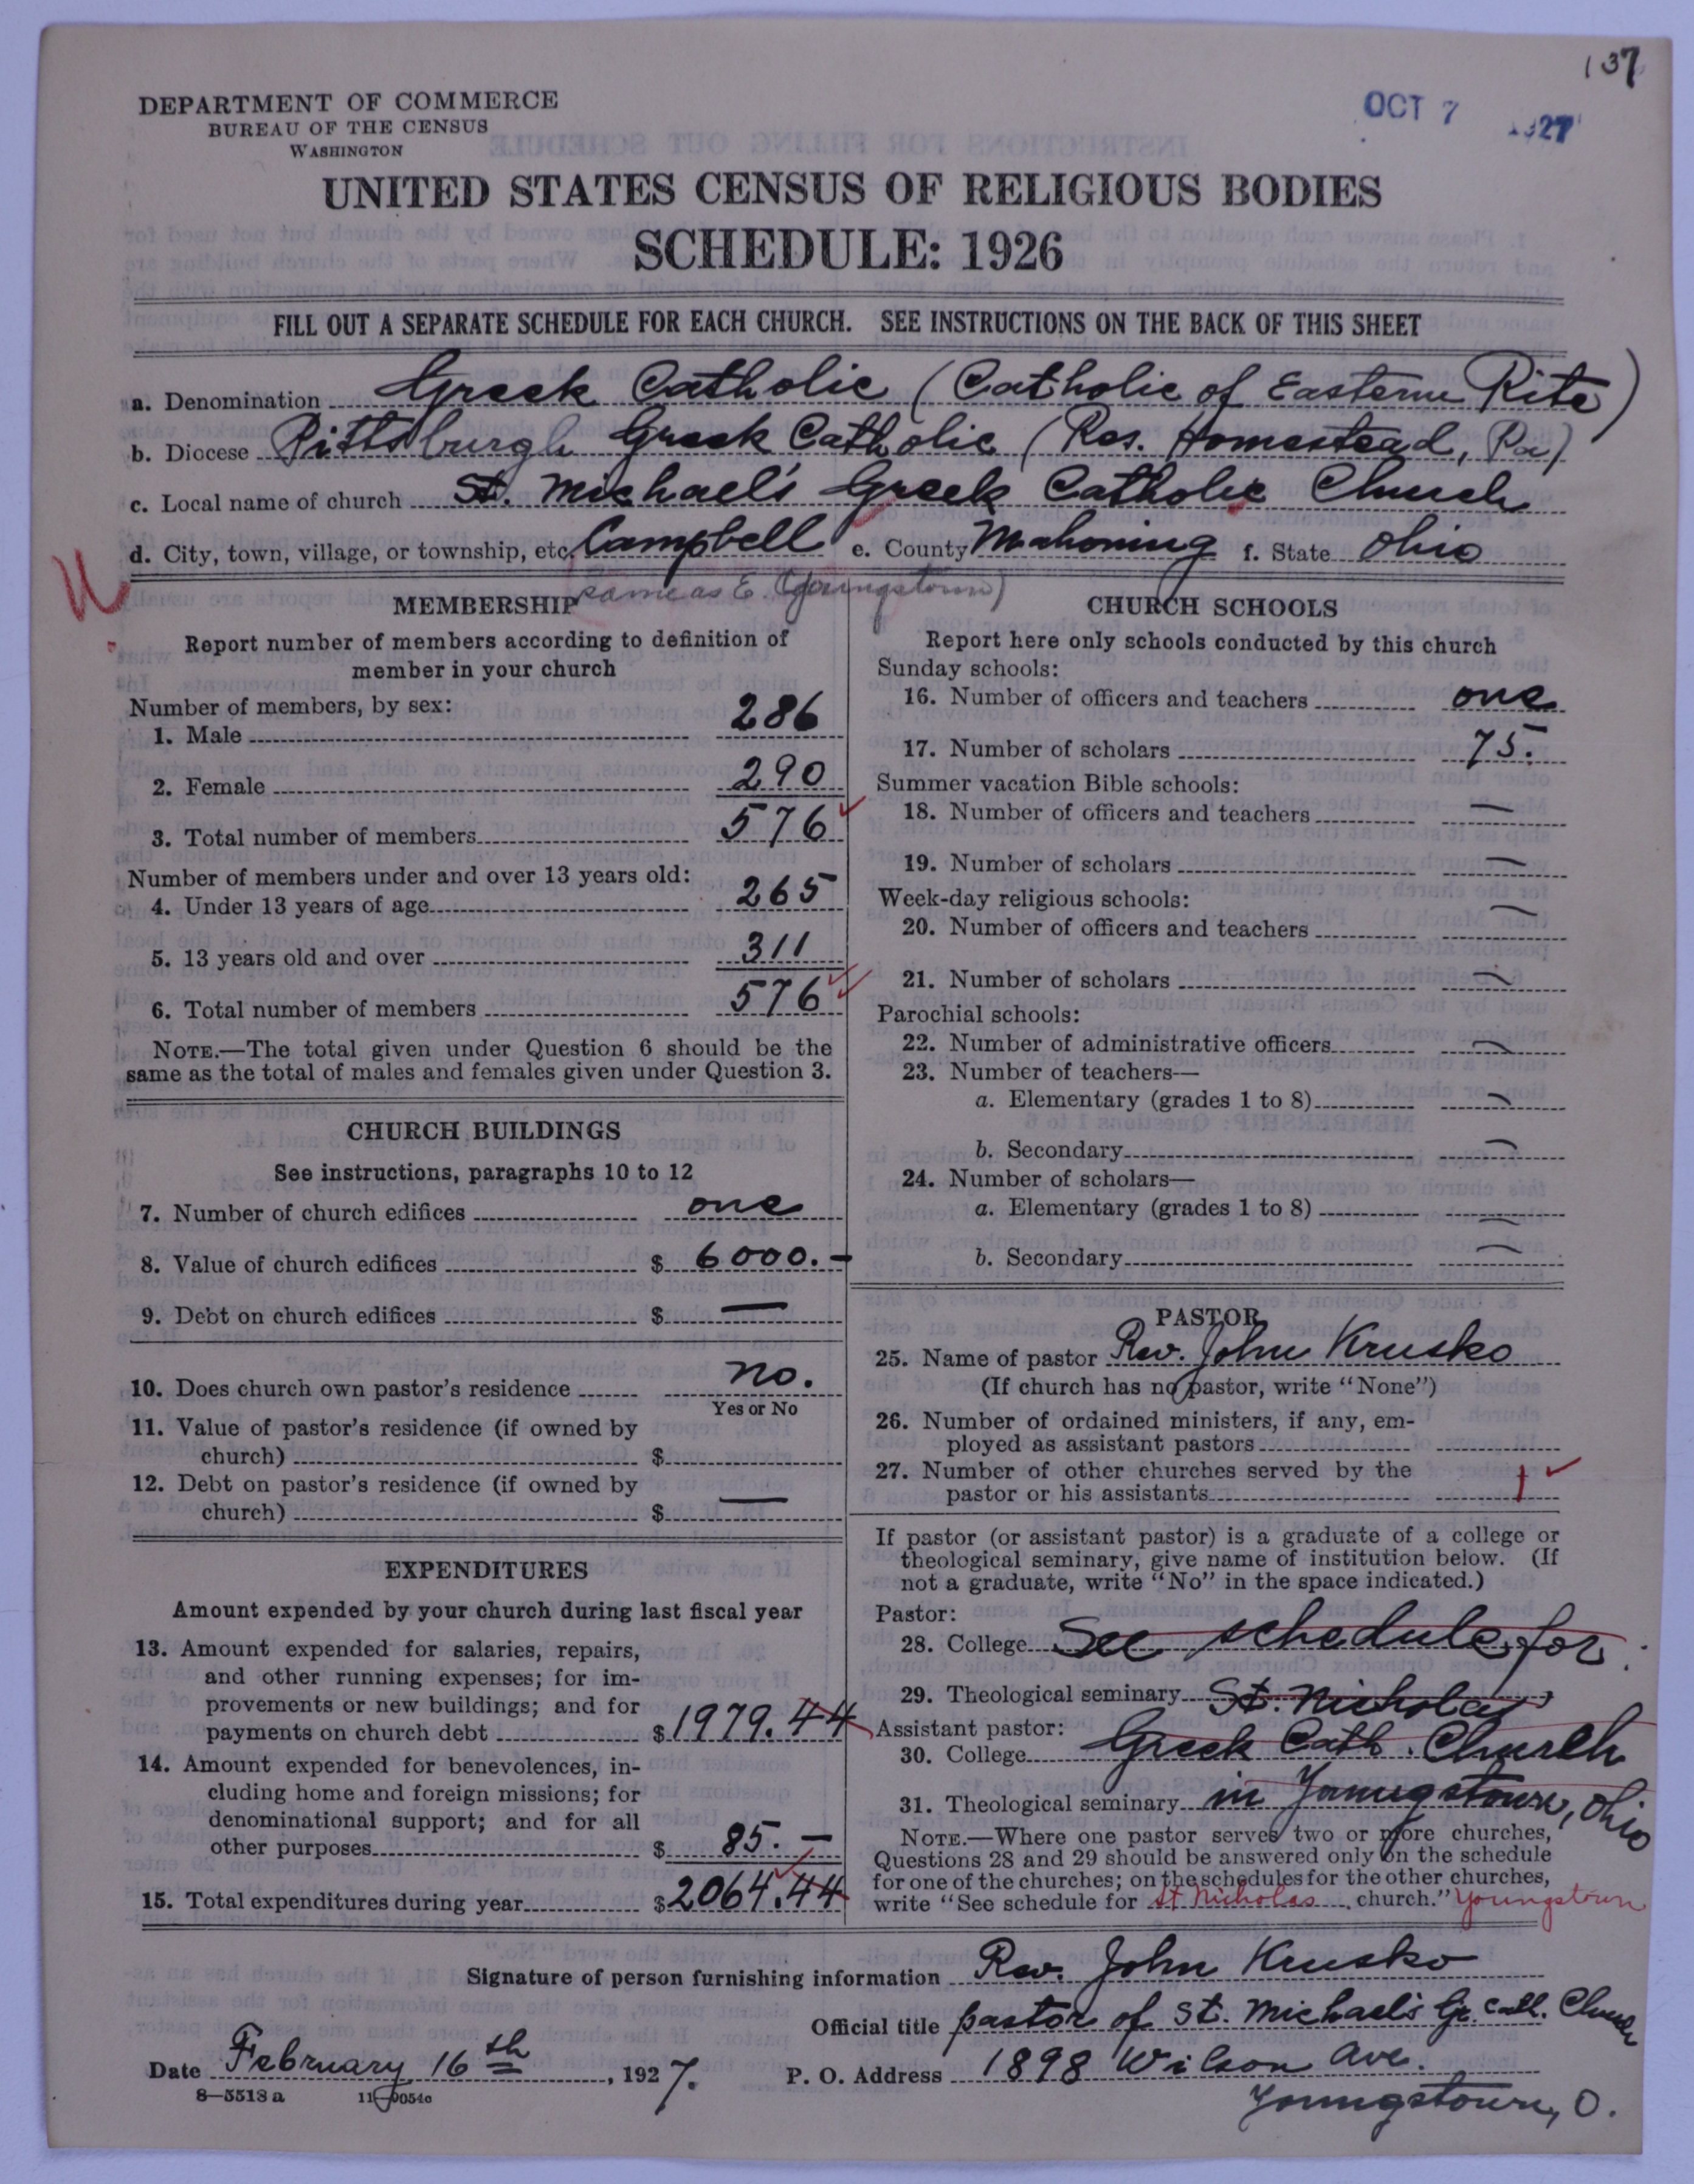 137
OCT 7 1927
DEPARTMENT OF COMMERCE
BUREAU OF THE CENSUS
WASHINGTON
UNITED STATES CENSUS OF RELIGIOUS BODIES
SCHEDULE: 1926
FILL OUT A SEPARATE SCHEDULE FOR EACH CHURCH. SEE INSTRUCTIONS ON THE BACK OF THIS SHEET
a. Denomination Greek Catholic (Catholic of Eastern Rite)
b. Diocese Pittsburgh Greek Catholic (Res. Homestead, Pa)
c. Local name of church St. Michael's Greek Catholic Church
d. City, town, village, or township, etc. Campbell e. County Mahoning f. State Ohio
(same as E. Youngstown)
MEMBERSHIP
Report number of members according to definition of
member in your church
Number of members, by sex:
1. Male 286
2. Female 290
3. Total number of members 576
Number of members under and over 13 years old:
4. Under 13 years of age 265
5. 13 years old and over 311
6. Total number of members 576
NOTE.—The total given under Question 6 should be the
same as the total of males and females given under Question 3.
CHURCH BUILDINGS
See instructions, paragraphs 10 to 12
7. Number of church edifices one
8. Value of church edifices $ 6000.—
9. Debt on church edifices $ —
10. Does church own pastor's residence no.
Yes or No
11. Value of pastor's residence (if owned by
church) $
12. Debt on pastor's residence (if owned by
church) $ —
EXPENDITURES
Amount expended by your church during last fiscal year
13. Amount expended for salaries, repairs,
and other running expenses; for im-
provements or new buildings; and for
payments on church debt $ 1979.44
14. Amount expended for benevolences, in-
cluding home and foreign missions; for
denominational support; and for all
other purposes $ 85.—
15. Total expenditures during year $ 2064.44
CHURCH SCHOOLS
Report here only schools conducted by this church
Sunday schools:
16. Number of officers and teachers one
17. Number of scholars 75.
Summer vacation Bible schools:
18. Number of officers and teachers —
19. Number of scholars —
Week-day religious schools:
20. Number of officers and teachers —
21. Number of scholars —
Parochial schools:
22. Number of administrative officers —
23. Number of teachers—
a. Elementary (grades 1 to 8) —
b. Secondary —
24. Number of scholars—
a. Elementary (grades 1 to 8) —
b. Secondary —
PASTOR
25. Name of pastor Rev. John Krusko
(If church has no pastor, write "None")
26. Number of ordained ministers, if any, em-
ployed as assistant pastors
27. Number of other churches served by the
pastor or his assistants 1
If pastor (or assistant pastor) is a graduate of a college or
theological seminary, give name of institution below. (If
not a graduate, write "No" in the space indicated.)
Pastor:
28. College See schedule for
29. Theological seminary St. Nicholas
Assistant pastor:
30. College Greek Cath. Church
31. Theological seminary in Youngstown, Ohio
NOTE.—Where one pastor serves two or more churches,
Questions 28 and 29 should be answered only on the schedule
for one of the churches; on the schedules for the other churches,
write "See schedule for St Nicholas church." Youngstown
Signature of person furnishing information Rev. John Krusko
Official title pastor of St. Michael's Gr. Cath. Church
Date February 16th, 1927. P. O. Address 1898 Wilson Ave.
Youngstown, O.
8—5513 a